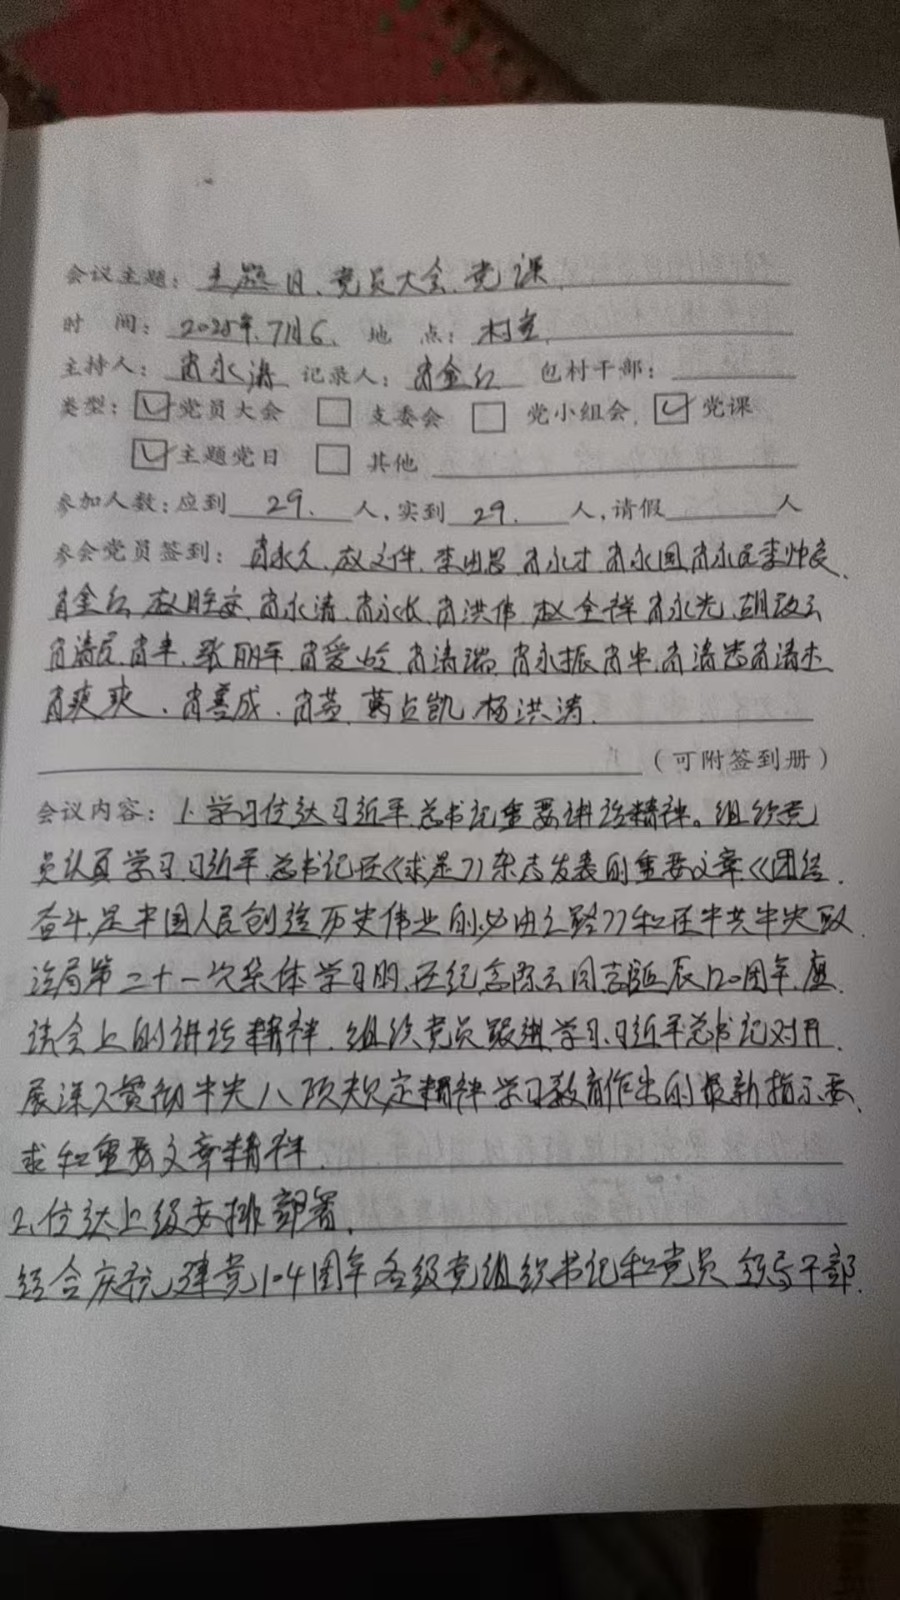 会议主题：主题日、党员大会、党课
时 间：2025年.7月6. 地 点：村室.
主持人：肖永涛 记录人：肖金红 包村干部：
类型：党员大会 支委会 党小组会 党课
主题党日 其他
参加人数：应到29.人，实到29.人，请假 人
参会党员签到：肖永久、赵文件、肖永才、肖永国 肖永民 李帅良、
肖金红、肖永清、肖永长、肖洪伟、赵全祥 肖永光、
肖清民、肖丰、张朋军、肖爱岭、肖清瑞、肖永振 肖清杰
肖爽爽、肖善成、肖英、葛占凯、杨洪涛.
（可附签到册）
会议内容：1.学习传达习近平总书记重要讲话精神。组织党
员认真学习习近平总书记在《求是》杂志发表的重要文章《团结
奋斗是中国人民创造历史伟业的必由之路》和在中共中央政
治局第二十一次集体学习时、在纪念陈云同志诞辰120周年座
谈会上的讲话精神.组织党员跟进学习习近平总书记对开
展深入贯彻中央八项规定精神学习教育作出的最新指示要
求和重要文章精神.
2、传达上级安排部署.
结合庆祝建党104周年各级党组织书记和党员领导干部